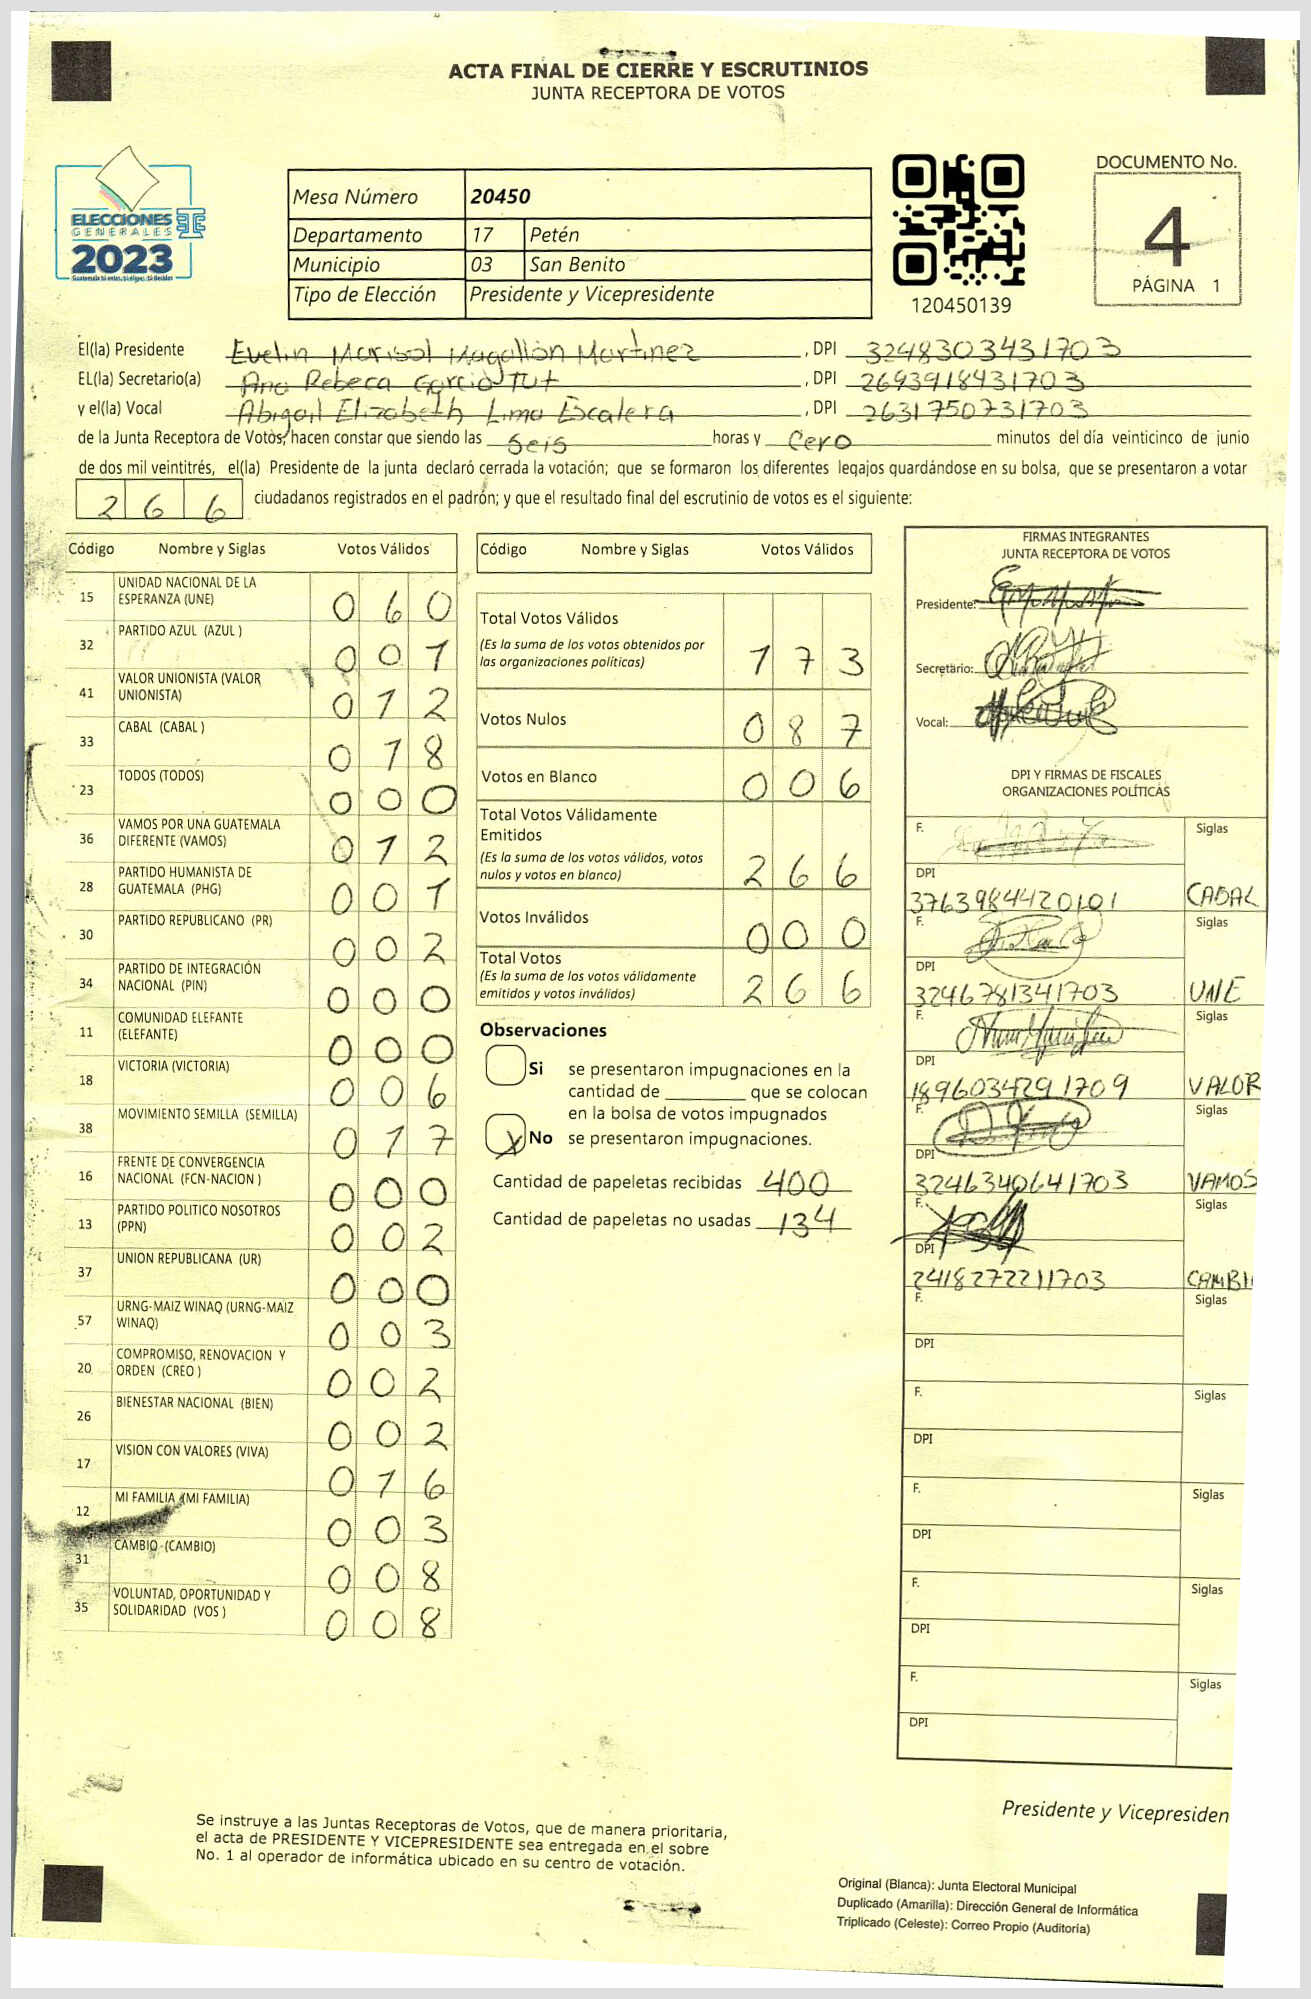 ACTA FINAL DE CIERRE Y ESCRUTINIOS
JUNTA RECEPTORA DE VOTOS
ELECCIONES
GENERALES
2023
Mesa Número 20450
Departamento 17 Petén
Municipio 03 San Benito
Tipo de Elección Presidente y Vicepresidente
120450139
DOCUMENTO No.
4
PÁGINA 1
El(la) Presidente Evelin Marisol Magallón Martinez , DPI 3248303431703
EL(la) Secretario(a) Ana Rebeca Garcia Tut , DPI 2693918431703
y el(la) Vocal Abigail Elizabeth Lima Escalera , DPI 2631750731703
de la Junta Receptora de Votos, hacen constar que siendo las Seis horas y Cero minutos del día veinticinco de junio
de dos mil veintitrés, el(la) Presidente de la junta declaró cerrada la votación; que se formaron los diferentes legajos guardándose en su bolsa, que se presentaron a votar
266 ciudadanos registrados en el padrón; y que el resultado final del escrutinio de votos es el siguiente:
Código Nombre y Siglas Votos Válidos
15 UNIDAD NACIONAL DE LA ESPERANZA (UNE) 060
32 PARTIDO AZUL (AZUL ) 001
41 VALOR UNIONISTA (VALOR UNIONISTA) 012
33 CABAL (CABAL ) 018
23 TODOS (TODOS) 000
36 VAMOS POR UNA GUATEMALA DIFERENTE (VAMOS) 012
28 PARTIDO HUMANISTA DE GUATEMALA (PHG) 001
30 PARTIDO REPUBLICANO (PR) 002
34 PARTIDO DE INTEGRACIÓN NACIONAL (PIN) 000
11 COMUNIDAD ELEFANTE (ELEFANTE) 000
18 VICTORIA (VICTORIA) 006
38 MOVIMIENTO SEMILLA (SEMILLA) 017
16 FRENTE DE CONVERGENCIA NACIONAL (FCN-NACION ) 000
13 PARTIDO POLITICO NOSOTROS (PPN) 002
37 UNION REPUBLICANA (UR) 000
57 URNG-MAIZ WINAQ (URNG-MAIZ WINAQ) 003
20 COMPROMISO, RENOVACION Y ORDEN (CREO ) 002
26 BIENESTAR NACIONAL (BIEN) 002
17 VISION CON VALORES (VIVA) 016
12 MI FAMILIA (MI FAMILIA) 003
31 CAMBIO (CAMBIO) 008
35 VOLUNTAD, OPORTUNIDAD Y SOLIDARIDAD (VOS ) 008
Código Nombre y Siglas Votos Válidos
Total Votos Válidos
(Es la suma de los votos obtenidos por
las organizaciones políticas) 173
Votos Nulos 087
Votos en Blanco 006
Total Votos Válidamente
Emitidos
(Es la suma de los votos válidos, votos
nulos y votos en blanco) 266
Votos Inválidos 000
Total Votos
(Es la suma de los votos válidamente
emitidos y votos inválidos) 266
Observaciones
Si se presentaron impugnaciones en la
cantidad de ________ que se colocan
en la bolsa de votos impugnados
X No se presentaron impugnaciones.
Cantidad de papeletas recibidas 400
Cantidad de papeletas no usadas 134
FIRMAS INTEGRANTES
JUNTA RECEPTORA DE VOTOS
Presidente:
Secretario:
Vocal:
DPI Y FIRMAS DE FISCALES
ORGANIZACIONES POLÍTICAS
F. Siglas
DPI
3763984420101 CABAL
F. Siglas
DPI
3246781341703 UNE
F. Siglas
DPI
1896034291709 VALOR
F. Siglas
DPI
3246340641703 VAMOS
F. Siglas
DPI
2418272211703 CAMBI
F. Siglas
DPI
F. Siglas
DPI
F. Siglas
DPI
F. Siglas
DPI
F. Siglas
DPI
Presidente y Vicepresiden
Se instruye a las Juntas Receptoras de Votos, que de manera prioritaria,
el acta de PRESIDENTE Y VICEPRESIDENTE sea entregada en el sobre
No. 1 al operador de informática ubicado en su centro de votación.
Original (Blanca): Junta Electoral Municipal
Duplicado (Amarilla): Dirección General de Informática
Triplicado (Celeste): Correo Propio (Auditoría)